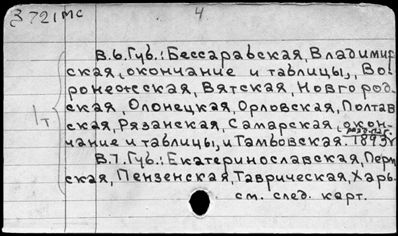 3721мс 4
В.6.Губ.: Бессарабская, Владимир
ская, окончание и таблицы, Во
ронежская, Вятская, Новгород-
ская, Олонецкая, Орловская, Полтав
1т
ская, Рязанская, Самарская, окон-
чание и таблицы, и Тамбовская. 1893г
В.7.Губ.: Екатеринославская, Перм
ская, Пензенская, Таврическая, Харь.
см. след. карт.